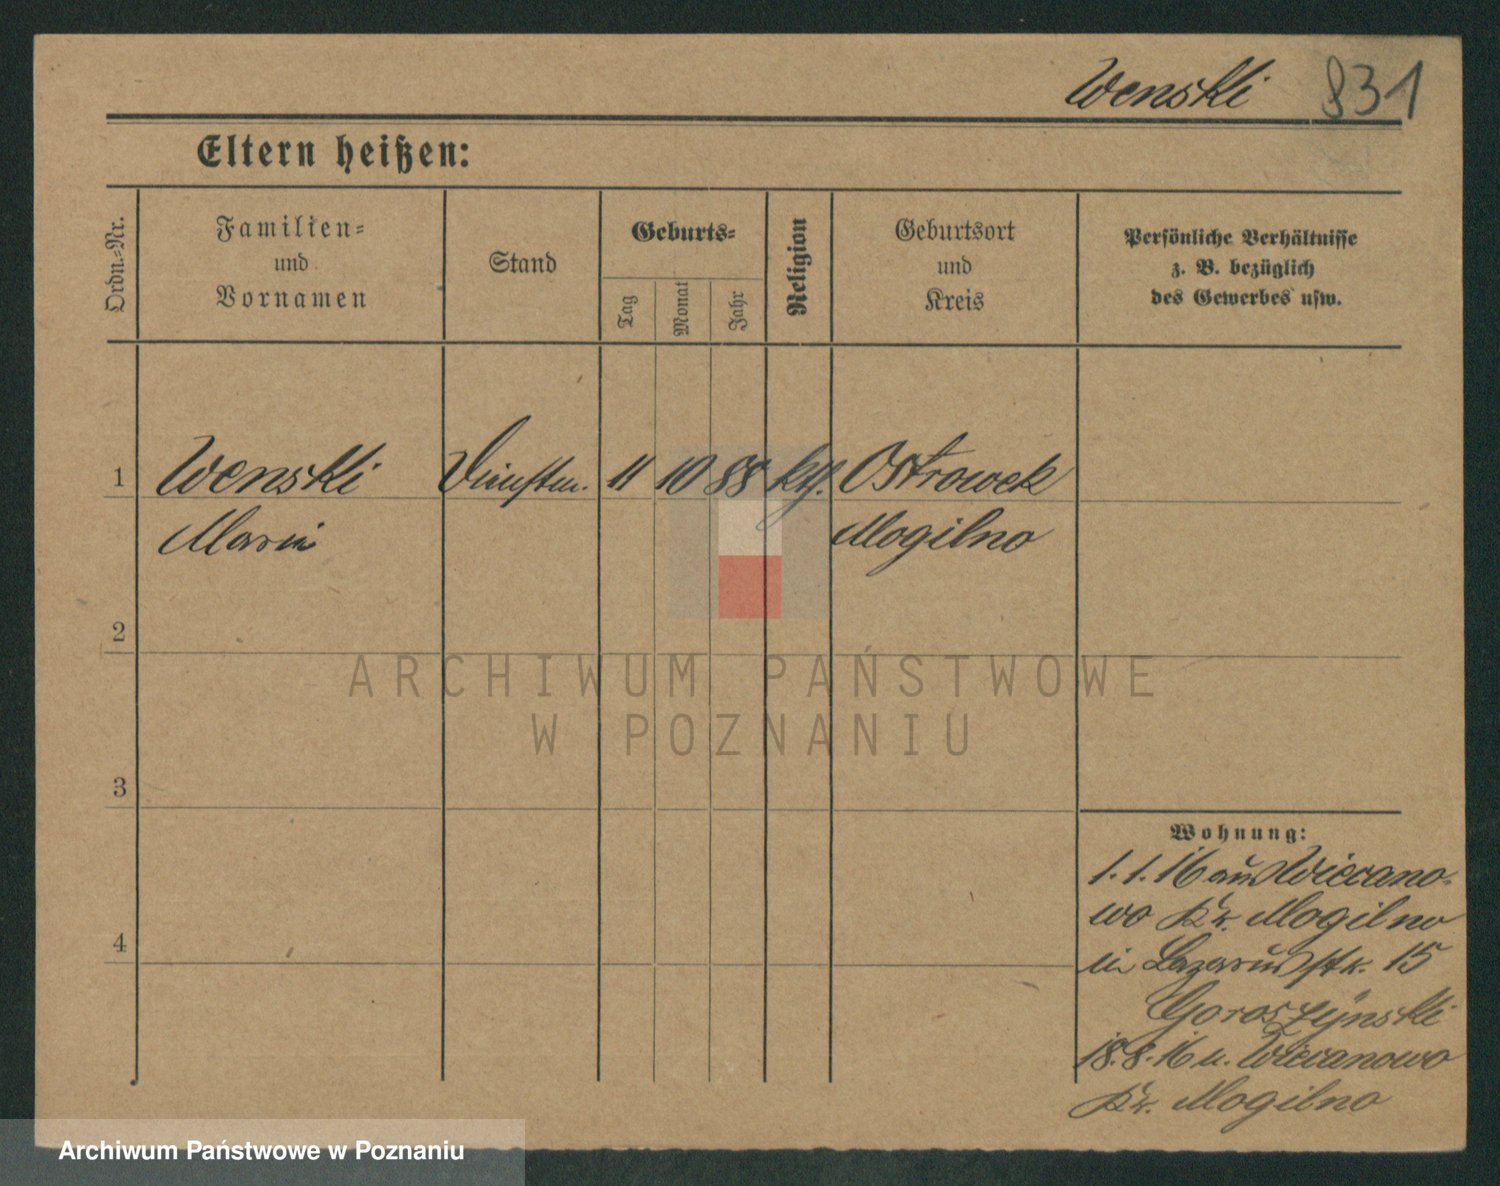 Wenski 831
Eltern heißen:
Ordn.-Nr.
Familien-
und
Vornamen
Stand
Geburts-
Tag
Monat
Jahr
Religion
Geburtsort
und
Kreis
Persönliche Verhältnisse
z. B. bezüglich
des Gewerbes usw.
1 Wenski 11 10 88 kth. Ostrowek
Marie Mogilno
2
3
4
Wohnung:
1.1.16 aus Wiecano-
wo Kr. Mogilno
in Lazarusstr. 15
Goroszynski
18.8.16 n. Wiecanowo
Kr. Mogilno
ARCHIWUM PAŃSTWOWE
W POZNANIU
Archiwum Państwowe w Poznaniu